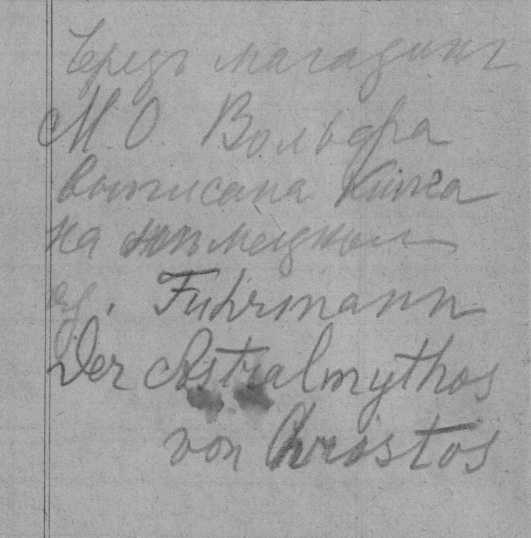 Чрезъ магазинъ
М. О. Вольфа
выписана книга
на нѣмецкомъ
яз. Fuhrmann
Der Astralmythos
von Christos